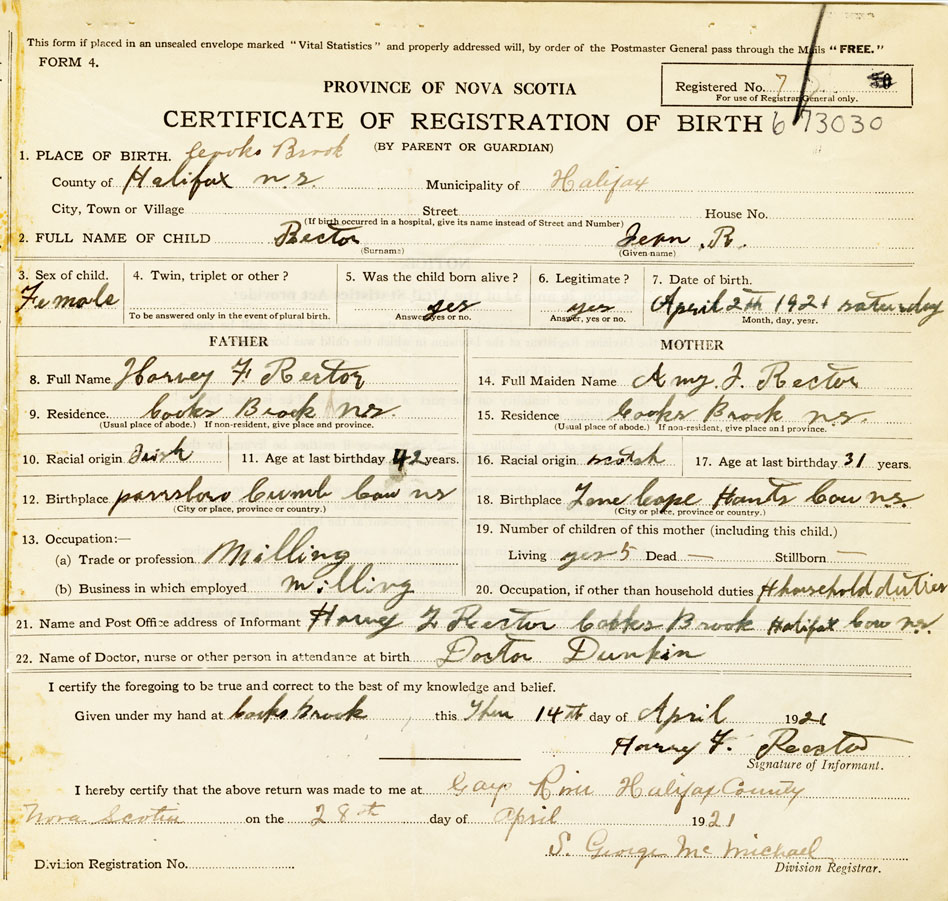 This form if placed in an unsealed envelope marked "Vital Statistics" and properly addressed will, by order of the Postmaster General pass through the Mails "FREE."
FORM 4.
PROVINCE OF NOVA SCOTIA
Registered No. 7
For use of Registrar General only.
CERTIFICATE OF REGISTRATION OF BIRTH 6 73030
(BY PARENT OR GUARDIAN)
1. PLACE OF BIRTH. Cooks Brook
County of Halifax n.s. Municipality of Halifax
City, Town or Village Street House No.
(If birth occurred in a hospital, give its name instead of Street and Number)
2. FULL NAME OF CHILD Rector Jean R.
(Surname) (Given name)
3. Sex of child. 4. Twin, triplet or other? 5. Was the child born alive? 6. Legitimate? 7. Date of birth.
Female yes yes April 2th 1921 saturday
To be answered only in the event of plural birth. Answer, yes or no. Answer, yes or no. Month, day, year.
FATHER MOTHER
8. Full Name Harvey F. Rector 14. Full Maiden Name Amy J. Rector
9. Residence. Cooks Brook ns. 15. Residence Cooks Brook n.s.
(Usual place of abode.) If non-resident, give place and province. (Usual place of abode.) If non-resident, give place and province.
10. Racial origin Irish 11. Age at last birthday 42 years. 16. Racial origin scotch 17. Age at last birthday 31 years.
12. Birthplace parrsboro Cumb Cou ns 18. Birthplace Cape Hants Cou ns.
(City or place, province or country.) (City or place, province or country.)
13. Occupation:— 19. Number of children of this mother (including this child.)
(a) Trade or profession Milling Living yes 5 Dead — Stillborn —
(b) Business in which employed milling 20. Occupation, if other than household duties Household duties
21. Name and Post Office address of Informant Harvey F Rector Cooks Brook Halifax Cou ns.
22. Name of Doctor, nurse or other person in attendance at birth Doctor Dunkin
I certify the foregoing to be true and correct to the best of my knowledge and belief.
Given under my hand at Cooks Brook, this 14th day of April 1921
Harvey F. Rector
Signature of Informant.
I hereby certify that the above return was made to me at Gays River Halifax County
Nova Scotia on the 28th day of April 1921
S. George McMichael
Division Registration No. Division Registrar.